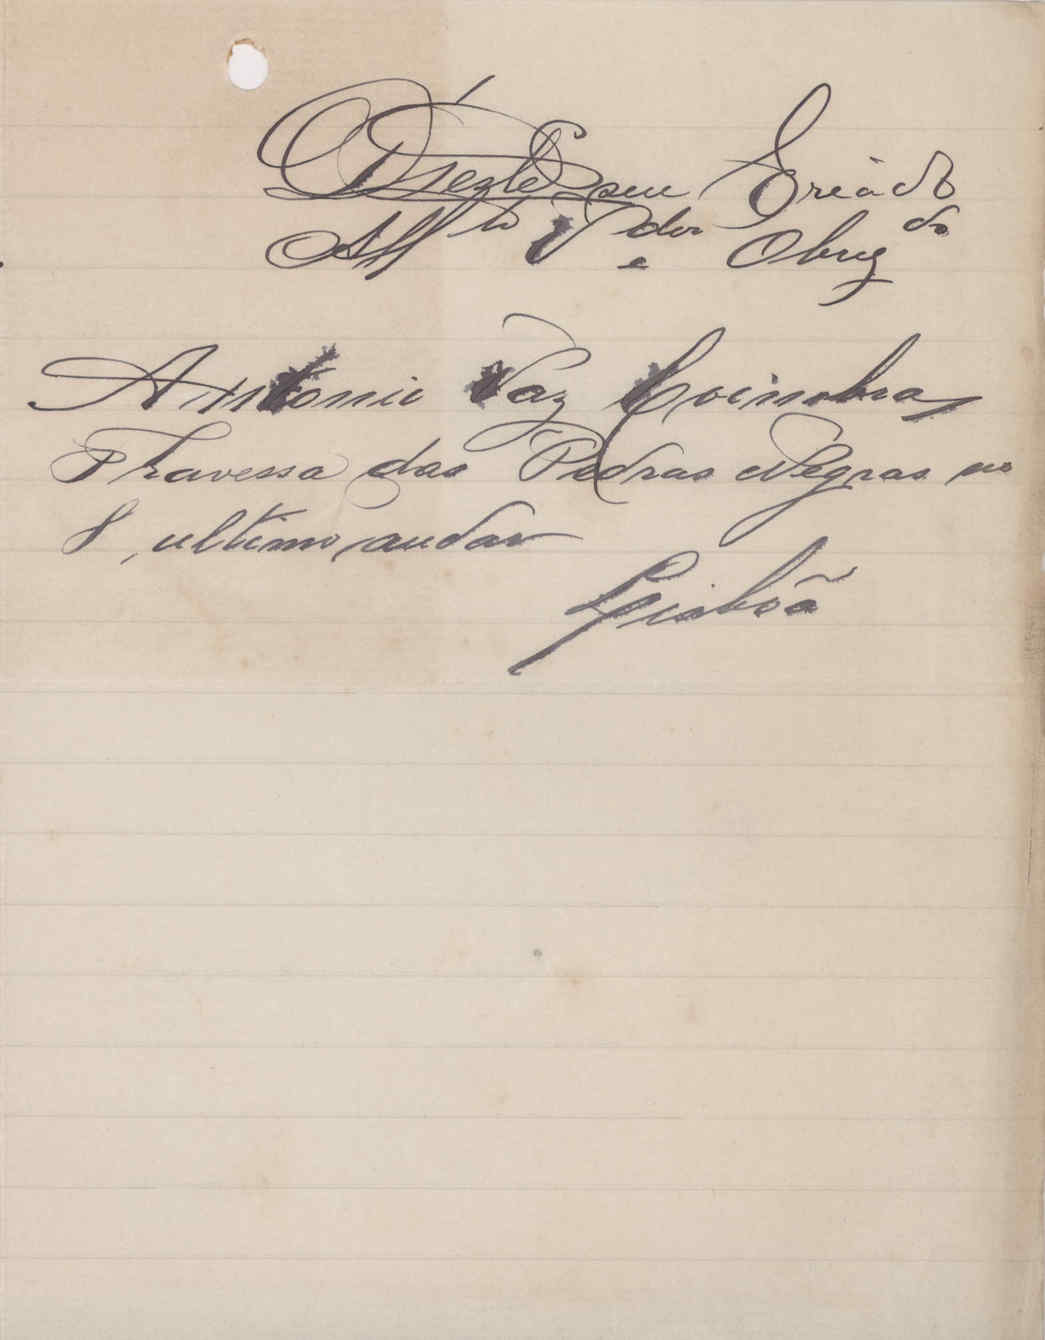 Deste seu Criàdo
Att.to V.dor e Obrig.do
Antonio Vaz Coimbra
Travessa das Pedras Negras no
8, ultimo andar
Lisbõa